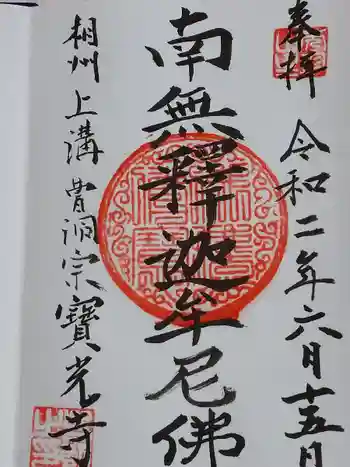 奉拝
令和二年六月十五日
南無釋迦牟尼佛
相州上溝曹洞宗寶光寺